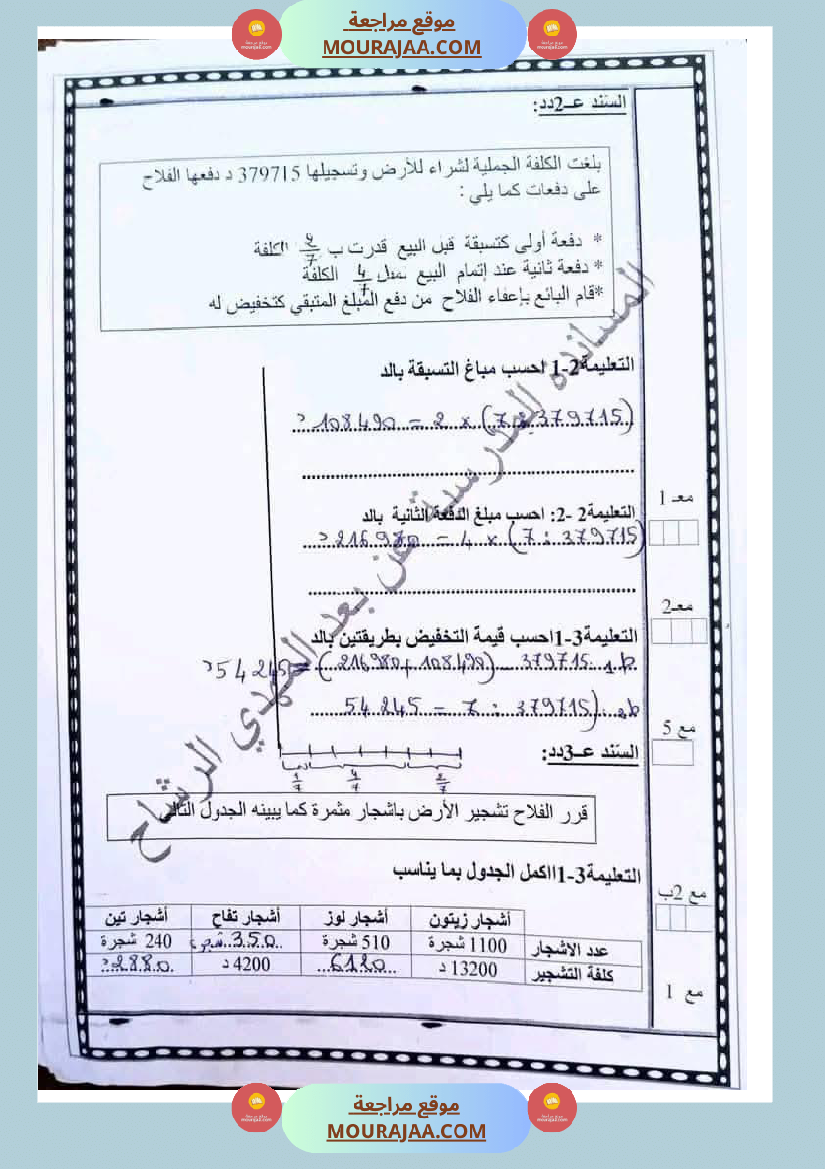 موقع مراجعة
MOURAJAA.COM
السند عـ2دد:
بلغت الكلفة الجملية لشراء للأرض وتسجيلها 379715 د دفعها الفلاح
على دفعات كما يلي :
* دفعة أولى كتسبقة قبل البيع قدرت ب 2/7 الكلفة
* دفعة ثانية عند إتمام البيع تمثل 4/7 الكلفة
*قام البائع بإعفاء الفلاح من دفع المبلغ المتبقي كتخفيض له
التعليمة2-1 احسب مباغ التسبقة بالد
(379715 : 7) x 2 = 108490 د
التعليمة2 -2: احسب مبلغ الدفعة الثانية بالد
(379715 : 7) x 4 = 216980 د
التعليمة3-1احسب قيمة التخفيض بطريقتين بالد
ط1: 379715 - (108490 + 216980) = 54245 د
ط2: (379715 : 7 = 54245
السند عـ3دد:
1/7 4/7 2/7
قرر الفلاح تشجير الأرض باشجار مثمرة كما يبينه الجدول التالي
التعليمة3-1ااكمل الجدول بما يناسب
أشجار زيتون أشجار لوز أشجار تفاح أشجار تين
عدد الاشجار 1100 شجرة 510 شجرة 350 شجرة 240 شجرة
كلفة التشجير 13200 د 6120 4200 د 2880 د
معـ 1
معـ2
مع 5
مع 2ب
مع 1
المساندة المدرسية عن بعد المهدي الرتاح
موقع مراجعة
MOURAJAA.COM